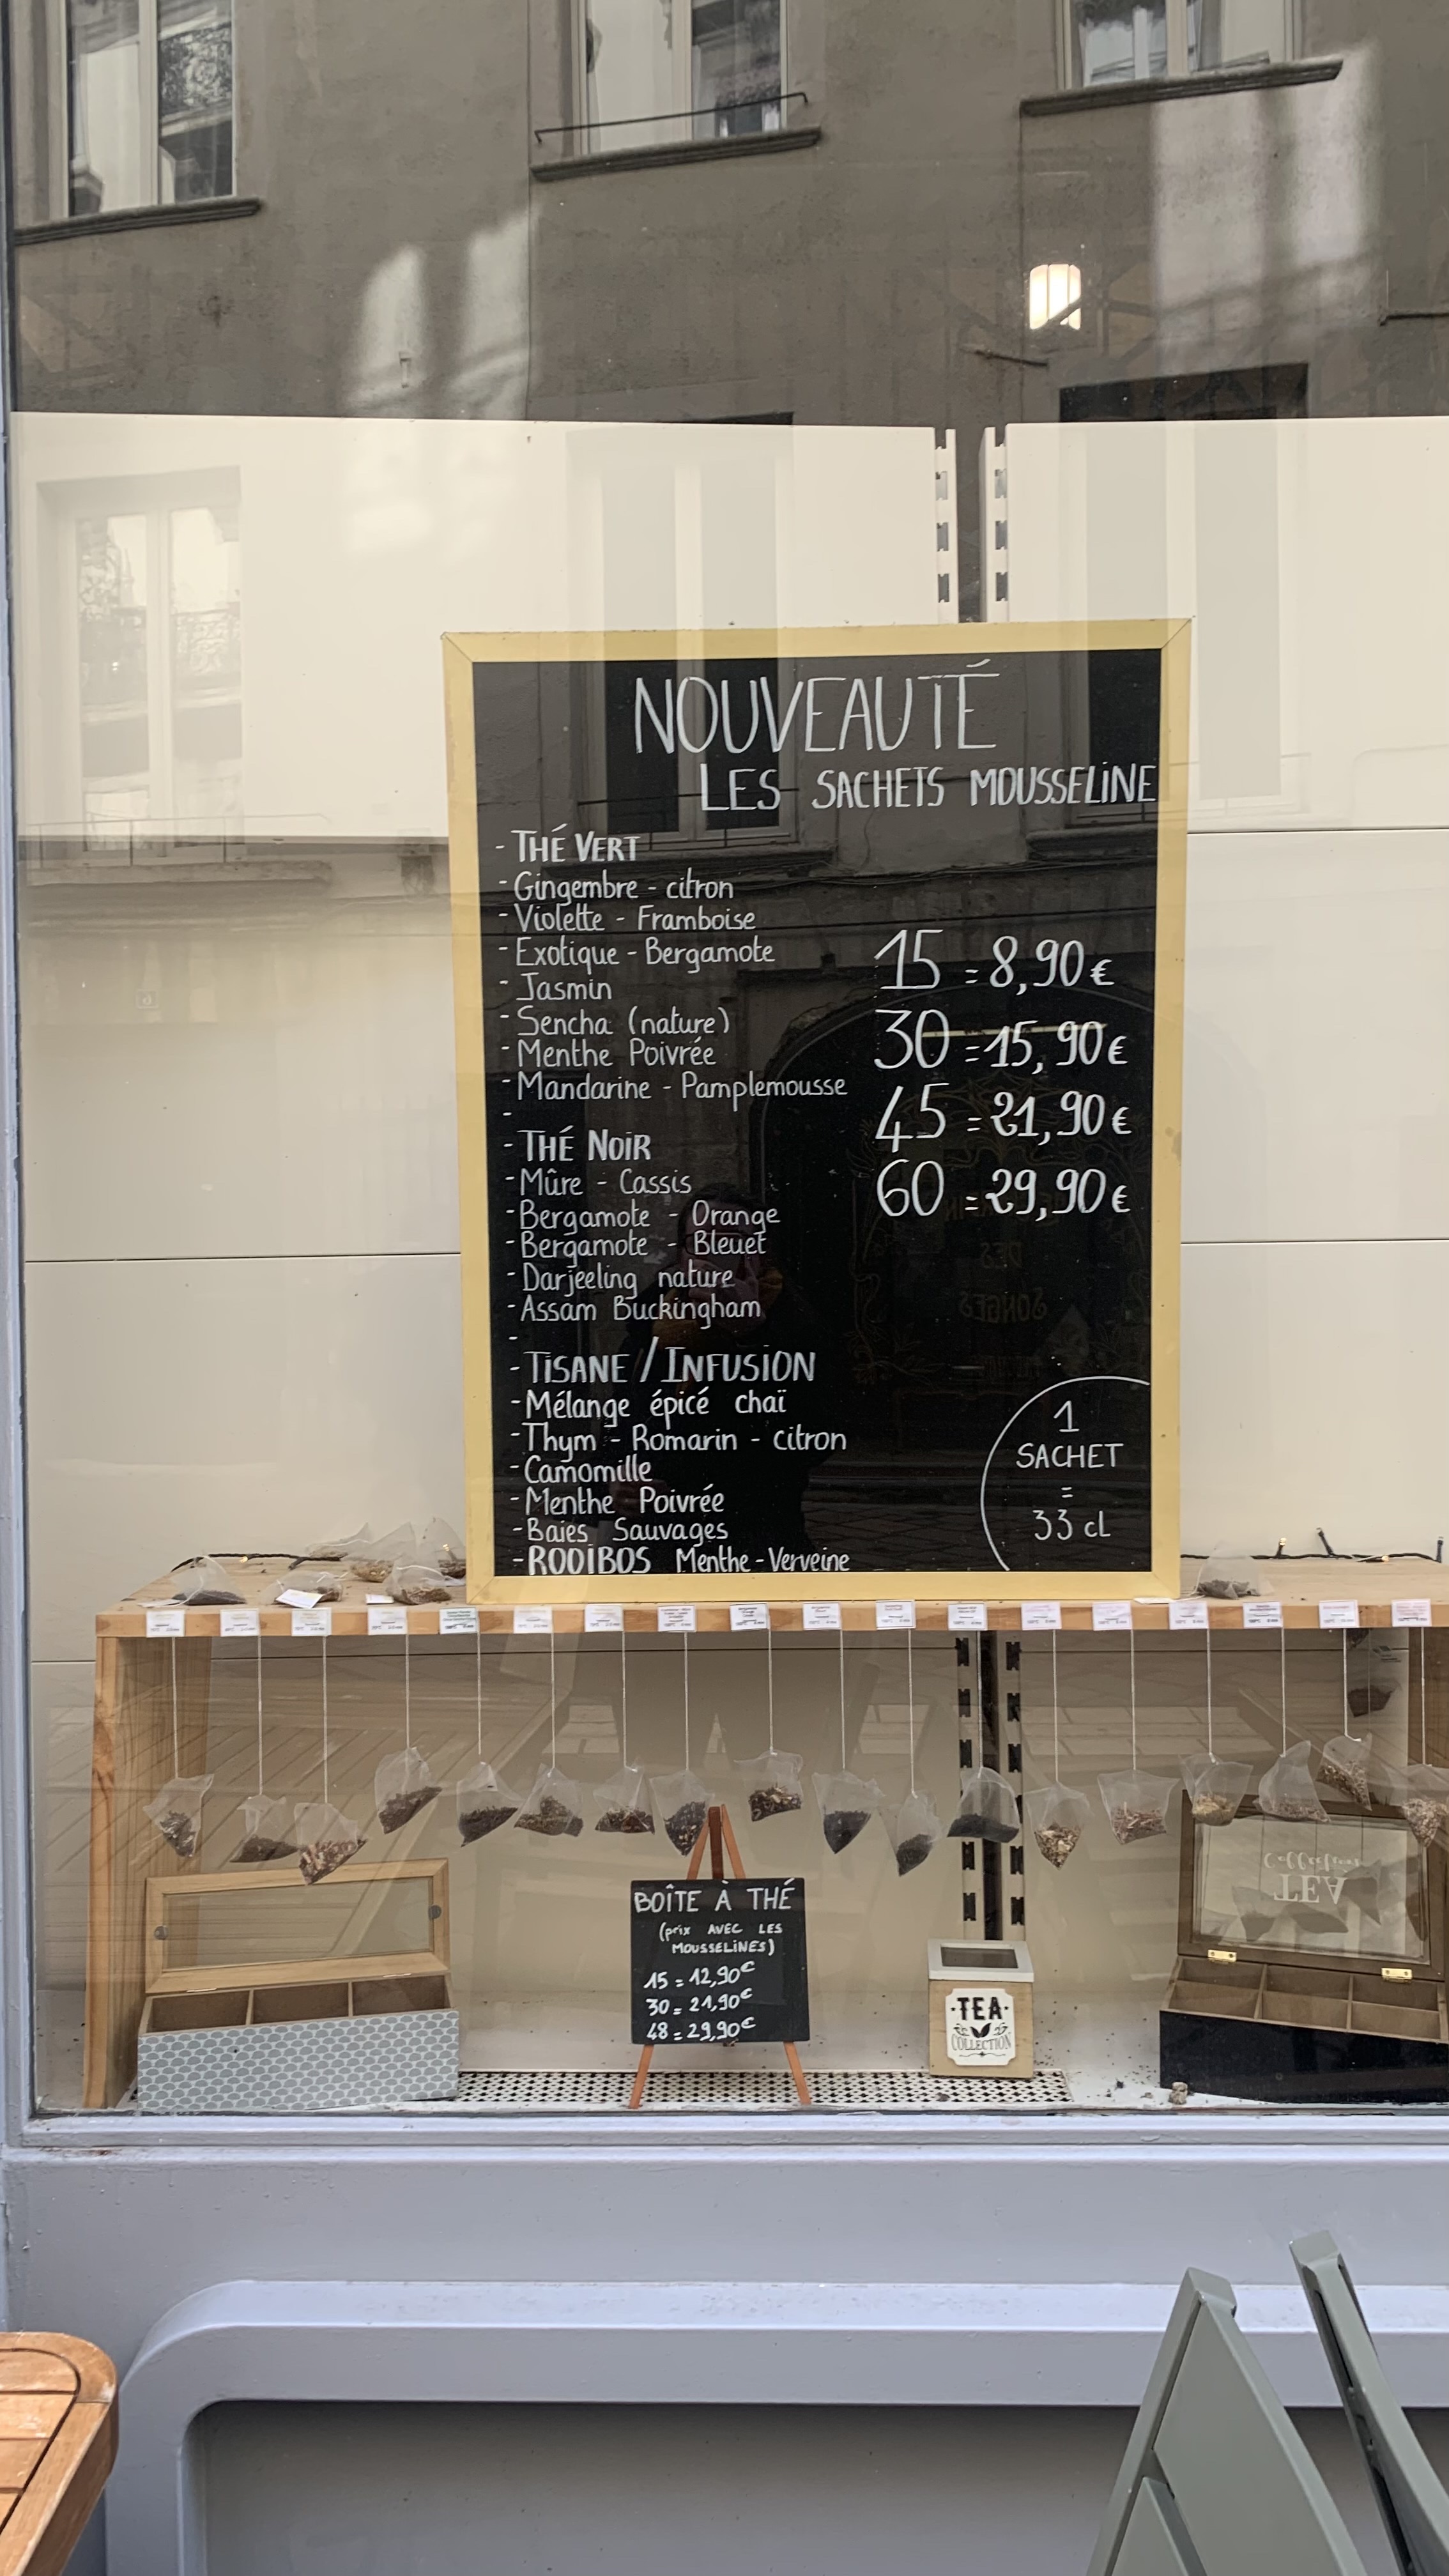 NOUVEAUTÉ
LES SACHETS MOUSSELINE
- THÉ VERT
- Gingembre - citron
- Violette - Framboise
- Exotique - Bergamote
- Jasmin
- Sencha (nature)
- Menthe Poivrée
- Mandarine - Pamplemousse
-
- THÉ NOIR
- Mûre - Cassis
- Bergamote - Orange
- Bergamote - Bleuet
- Darjeeling nature
- Assam Buckingham
-
- TISANE / INFUSION
- Mélange épicé chaï
- Thym - Romarin - citron
- Camomille
- Menthe Poivrée
- Baies Sauvages
- ROOIBOS Menthe - Verveine
15 = 8,90 €
30 = 15,90 €
45 = 21,90 €
60 = 29,90 €
1
SACHET
=
33 cL
DES
SONGES
BOÎTE À THÉ
(prix AVEC LES
MOUSSELINES)
15 = 12,90€
30 = 21,90€
48 = 29,90€
TEA
COLLECTION
Collection
TEA